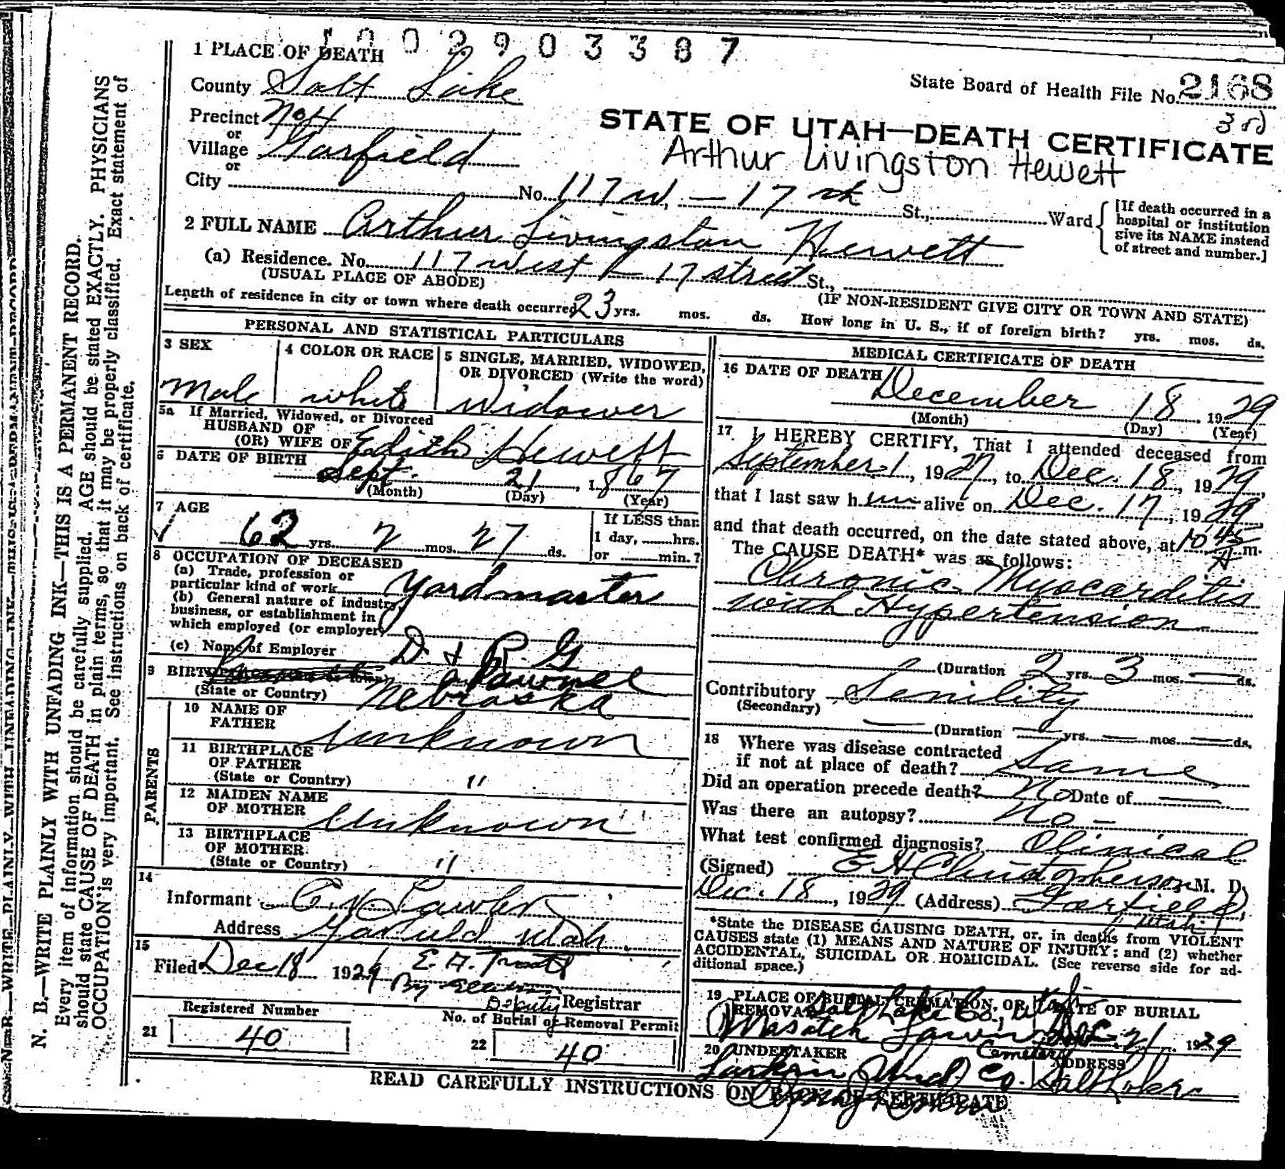 1002903387
1 PLACE OF DEATH
County Salt Lake
State Board of Health File No. 2168
Precinct No 4
3rd
or
STATE OF UTAH—DEATH CERTIFICATE
Village Garfield
Arthur Livingston Hewett
or
City No. 117 W. — 17 th St., Ward
[If death occurred in a hospital or institution give its NAME instead of street and number.]
2 FULL NAME Arthur Livingston Hewett
(a) Residence. No. 117 West 17 street St.,
(USUAL PLACE OF ABODE) (IF NON-RESIDENT GIVE CITY OR TOWN AND STATE)
Length of residence in city or town where death occurred 23 yrs. mos. ds. How long in U. S., if of foreign birth? yrs. mos. ds.
PERSONAL AND STATISTICAL PARTICULARS
3 SEX
Male
4 COLOR OR RACE
white
5 SINGLE, MARRIED, WIDOWED,
OR DIVORCED (Write the word)
Widower
5a If Married, Widowed, or Divorced
HUSBAND OF
(OR) WIFE OF Edith Hewett
6 DATE OF BIRTH
Sept. 21 1867
(Month) (Day) (Year)
7 AGE
✓ 62 yrs. 2 mos. 27 ds.
If LESS than
1 day, hrs.
or min.?
8 OCCUPATION OF DECEASED
(a) Trade, profession or
particular kind of work yardmaster
(b) General nature of industry
business, or establishment in
which employed (or employer)
(c) Name of Employer D & R. G
9 BIRTH Pawnee
(State or Country) Nebraska
PARENTS
10 NAME OF
FATHER Unknown
11 BIRTHPLACE
OF FATHER
(State or Country) "
12 MAIDEN NAME
OF MOTHER Unknown
13 BIRTHPLACE
OF MOTHER
(State or Country) "
14
Informant Lawler
Address Garfield Utah.
15
Filed Dec 18 1929
By
Deputy Registrar
Registered Number
21 40
No. of Burial or Removal Permit
22 40
MEDICAL CERTIFICATE OF DEATH
16 DATE OF DEATH
December 18 1929
(Month) (Day) (Year)
17 I HEREBY CERTIFY, That I attended deceased from
September 1, 1927, to Dec. 18, 1929,
that I last saw him alive on Dec. 17, 1929
and that death occurred, on the date stated above, at 10 45 A m.
The CAUSE DEATH* was as follows:
Chronic Myocarditis
with Hypertension
(Duration 2 yrs. 3 mos. — ds.
Contributory Senility
(Secondary)
— (Duration — yrs. — mos. — ds.
18 Where was disease contracted
if not at place of death? Same
Did an operation precede death? No Date of —
Was there an autopsy? No —
What test confirmed diagnosis? Clinical
(Signed) E H Christopherson M. D.
Dec. 18, 1929 (Address) Garfield,
Utah
*State the DISEASE CAUSING DEATH, or, in deaths from VIOLENT
CAUSES state (1) MEANS AND NATURE OF INJURY; and (2) whether
ACCIDENTAL, SUICIDAL OR HOMICIDAL. (See reverse side for ad-
ditional space.)
19 PLACE OF BURIAL, CREMATION, OR REMOVAL DATE OF BURIAL
Salt Lake Co, Utah
Wasatch Lawn Cemetery Dec 21 1929
20 UNDERTAKER ADDRESS
Larkin Und Co. Salt Lake
READ CAREFULLY INSTRUCTIONS ON BACK OF CERTIFICATE
N. B.—WRITE PLAINLY WITH UNFADING INK—THIS IS A PERMANENT RECORD.
Every item of information should be carefully supplied. AGE should be stated EXACTLY. PHYSICIANS
should state CAUSE OF DEATH in plain terms, so that it may be properly classified. Exact statement of
OCCUPATION is very important. See instructions on back of certificate.